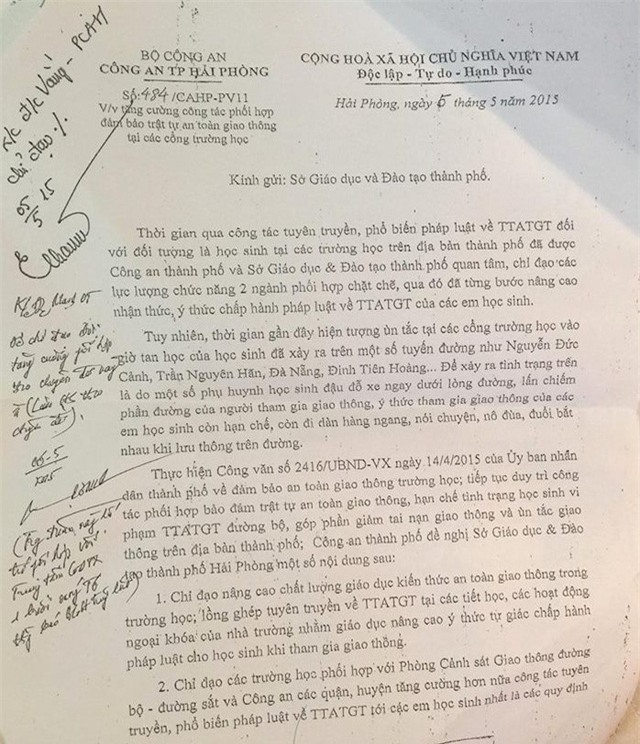 BỘ CÔNG AN
CÔNG AN TP HẢI PHÒNG
Số: 484/CAHP-PV11
V/v tăng cường công tác phối hợp
đảm bảo trật tự an toàn giao thông
tại các cổng trường học
CỘNG HOÀ XÃ HỘI CHỦ NGHĨA VIỆT NAM
Độc lập - Tự do - Hạnh phúc
Hải Phòng, ngày 5 tháng 5 năm 2015
K/c đ/c Vàng - PCAH
chỉ đạo
05/5 15
Kính gửi: Sở Giáo dục và Đào tạo thành phố.
Thời gian qua công tác tuyên truyền, phổ biến pháp luật về TTATGT đối
với đối tượng là học sinh tại các trường học trên địa bàn thành phố đã được
Công an thành phố và Sở Giáo dục & Đào tạo thành phố quan tâm, chỉ đạo các
lực lượng chức năng 2 ngành phối hợp chặt chẽ, qua đó đã từng bước nâng cao
nhận thức, ý thức chấp hành pháp luật về TTATGT của các em học sinh.
Tuy nhiên, thời gian gần đây hiện tượng ùn tắc tại các cổng trường học vào
giờ tan học của học sinh đã xảy ra trên một số tuyến đường như Nguyễn Đức
Cảnh, Trần Nguyên Hãn, Đà Nẵng, Đinh Tiên Hoàng... Để xảy ra tình trạng trên
là do một số phụ huynh học sinh đậu đỗ xe ngay dưới lòng đường, lấn chiếm
phần đường của người tham gia giao thông, ý thức tham gia giao thông của các
em học sinh còn hạn chế, còn đi dàn hàng ngang, nói chuyện, nô đùa, đuổi bắt
nhau khi lưu thông trên đường.
05-5
Thực hiện Công văn số 2416/UBND-VX ngày 14/4/2015 của Ủy ban nhân
dân thành phố về đảm bảo an toàn giao thông trường học; tiếp tục duy trì công
tác phối hợp bảo đảm trật tự an toàn giao thông, hạn chế tình trạng học sinh vi
phạm TTATGT đường bộ, góp phần giảm tai nạn giao thông và ùn tắc giao
thông trên địa bàn thành phố; Công an thành phố đề nghị Sở Giáo dục & Đào
tạo thành phố Hải Phòng một số nội dung sau:
1. Chỉ đạo nâng cao chất lượng giáo dục kiến thức an toàn giao thông trong
trường học; lồng ghép tuyên truyền về TTATGT tại các tiết học, các hoạt động
ngoại khóa của nhà trường nhằm giáo dục nâng cao ý thức tự giác chấp hành
pháp luật cho học sinh khi tham gia giao thông.
2. Chỉ đạo các trường học phối hợp với Phòng Cảnh sát Giao thông đường
bộ - đường sắt và Công an các quận, huyện tăng cường hơn nữa công tác tuyên
truyền, phổ biến pháp luật về TTATGT tới các em học sinh nhất là các quy định